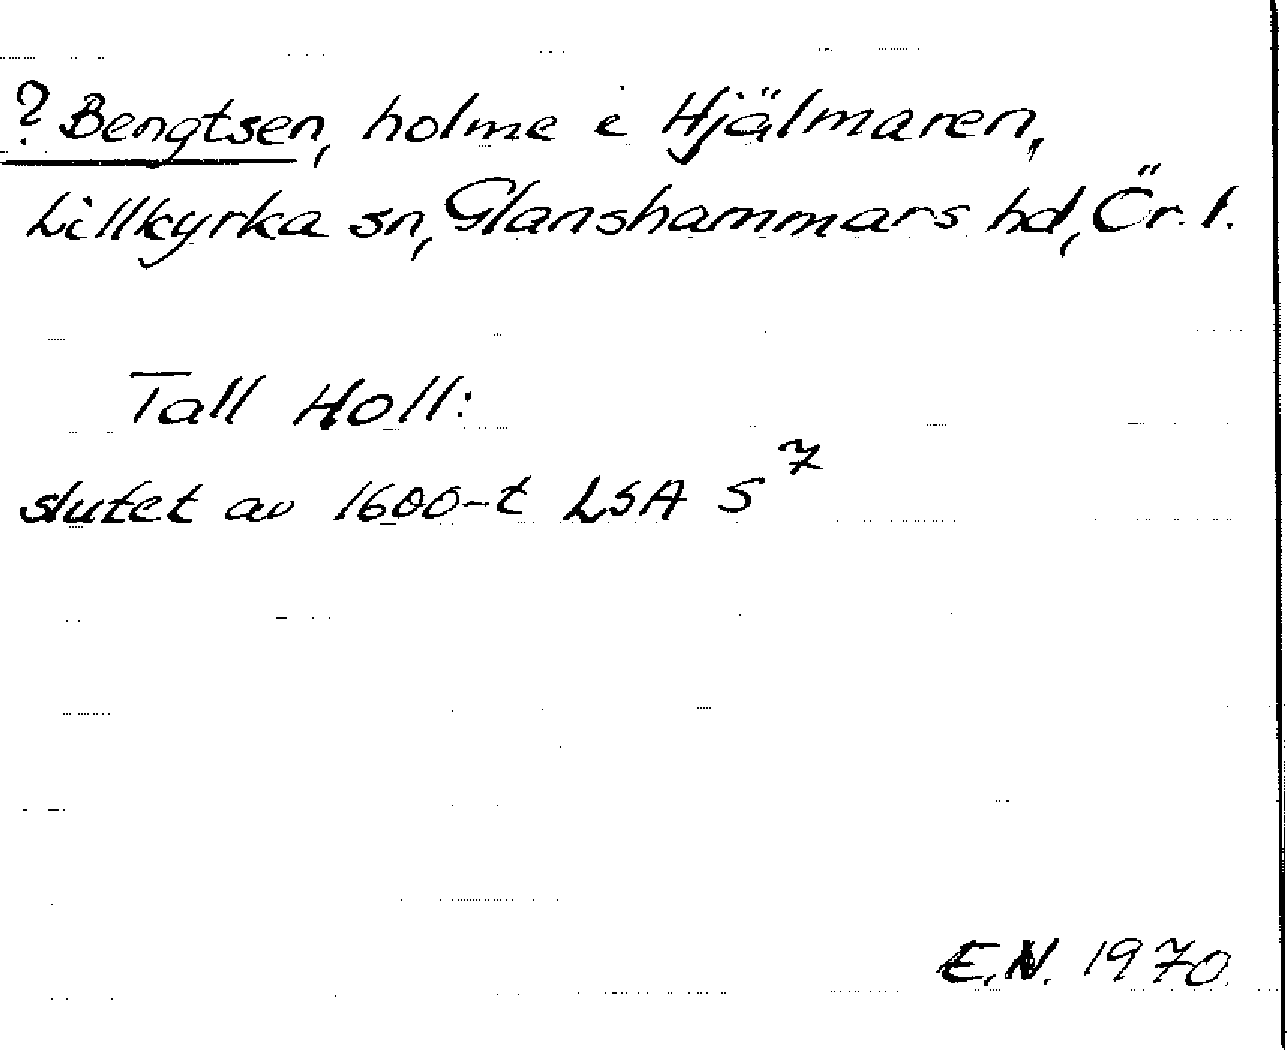 ? Bengtsen, holme i Hjälmaren,
Lillkyrka sn, Glanshammars hd, Ör. l.
Tall Holl:
slutet av 1600-t LSA S 7
E.N. 1970